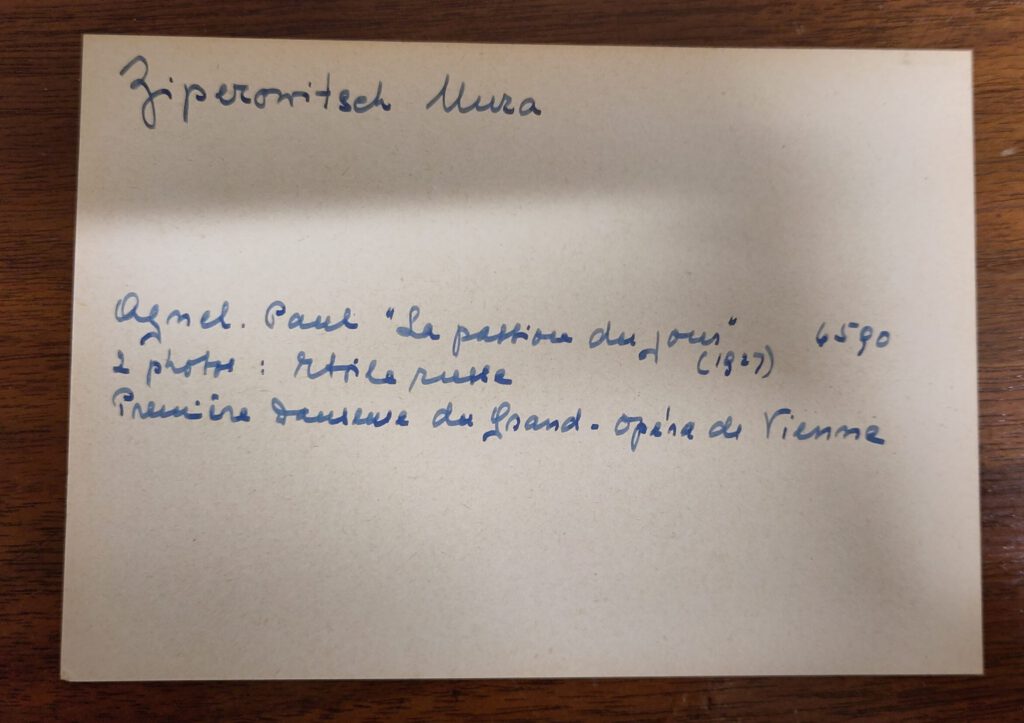 Ziperowitsch Mura
Agnel. Paul "La passion du jour" 6590
(1927)
2 photos : Etoile russe
Première Danseuse du Grand-Opéra de Vienne